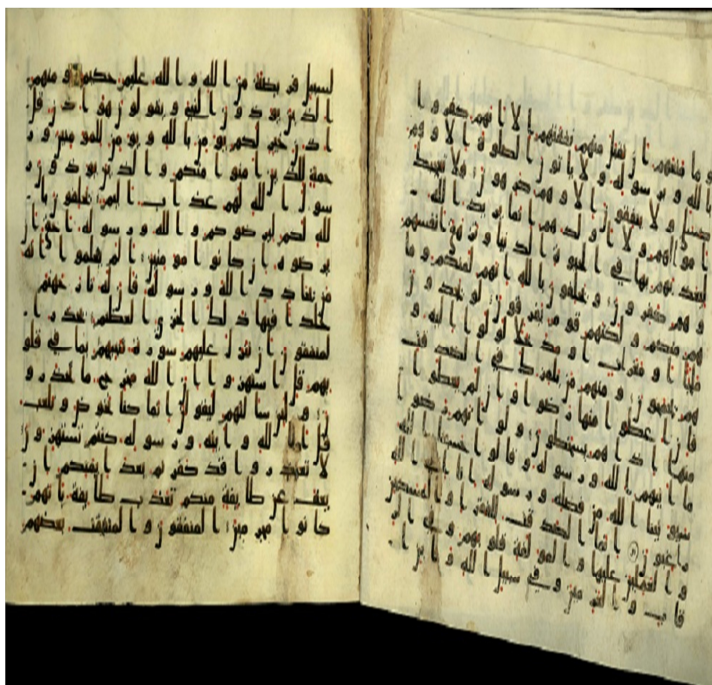 وما منعهم ان تقبل منهم نفقتهم الا انهم كفروا
بالله وبرسوله ولا ياتون الصلوة الا وهم
كسلى ولا ينفقون الا وهم كرهون فلا تعجبك
امولهم ولا اولدهم انما يريد الله
ليعذبهم بها في الحيوة الدنيا وتزهق انفسهم
وهم كفرون ويحلفون بالله انهم لمنكم وما
هم منكم ولكنهم قوم يفرقون لو يجدون
ملجا او مغرت او مدخلا لولوا اليه و
هم يجمحون ومنهم من يلمزك في الصدقت
فان اعطوا منها رضوا وان لم يعطوا
منها اذا هم يسخطون ولو انهم رضوا
ما اتيهم الله ورسوله وقالوا حسبنا الله
سيوتينا الله من فضله ورسوله انا الى الله
رغبون انما الصدقت للفقرا والمسكين
والعملين عليها والمولفة قلوبهم وفي الر
قاب والغرمين وفي سبيل الله وابن ا
لسبيل فريضة من الله والله عليم حكيم ومنهم
الذين يوذون النبي ويقولون هو اذن قل
اذن خير لكم يومن بالله ويومن للمومنين ور
حمة للذين امنوا منكم والذين يوذون ر
سول الله لهم عذاب اليم يحلفون با
لله لكم ليرضوكم والله ورسوله احق ان
يرضوه ان كانوا مومنين الم يعلموا انه
من يحادد الله ورسوله فان له نار جهنم
خلدا فيها ذلك الخزي العظيم يحذر ا
لمنفقون ان تنزل عليهم سورة تنبيهم بما في قلو
بهم قل استهزوا ان الله مخرج ما تحذرو
ن ولين سالتهم ليقولن انما كنا نخوض ونلعب
قل ابالله وايته ورسوله كنتم تستهزون
لا تعتذروا قد كفرتم بعد ايمنكم ان
يعف عن طايفة منكم تعذب طايفة بانهم
كانوا مجرمين المنفقون والمنفقت بعضهم